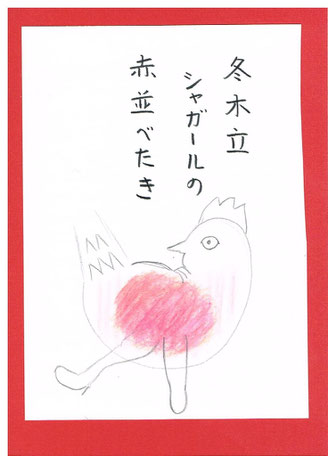 冬木立
シャガールの
赤並べたき